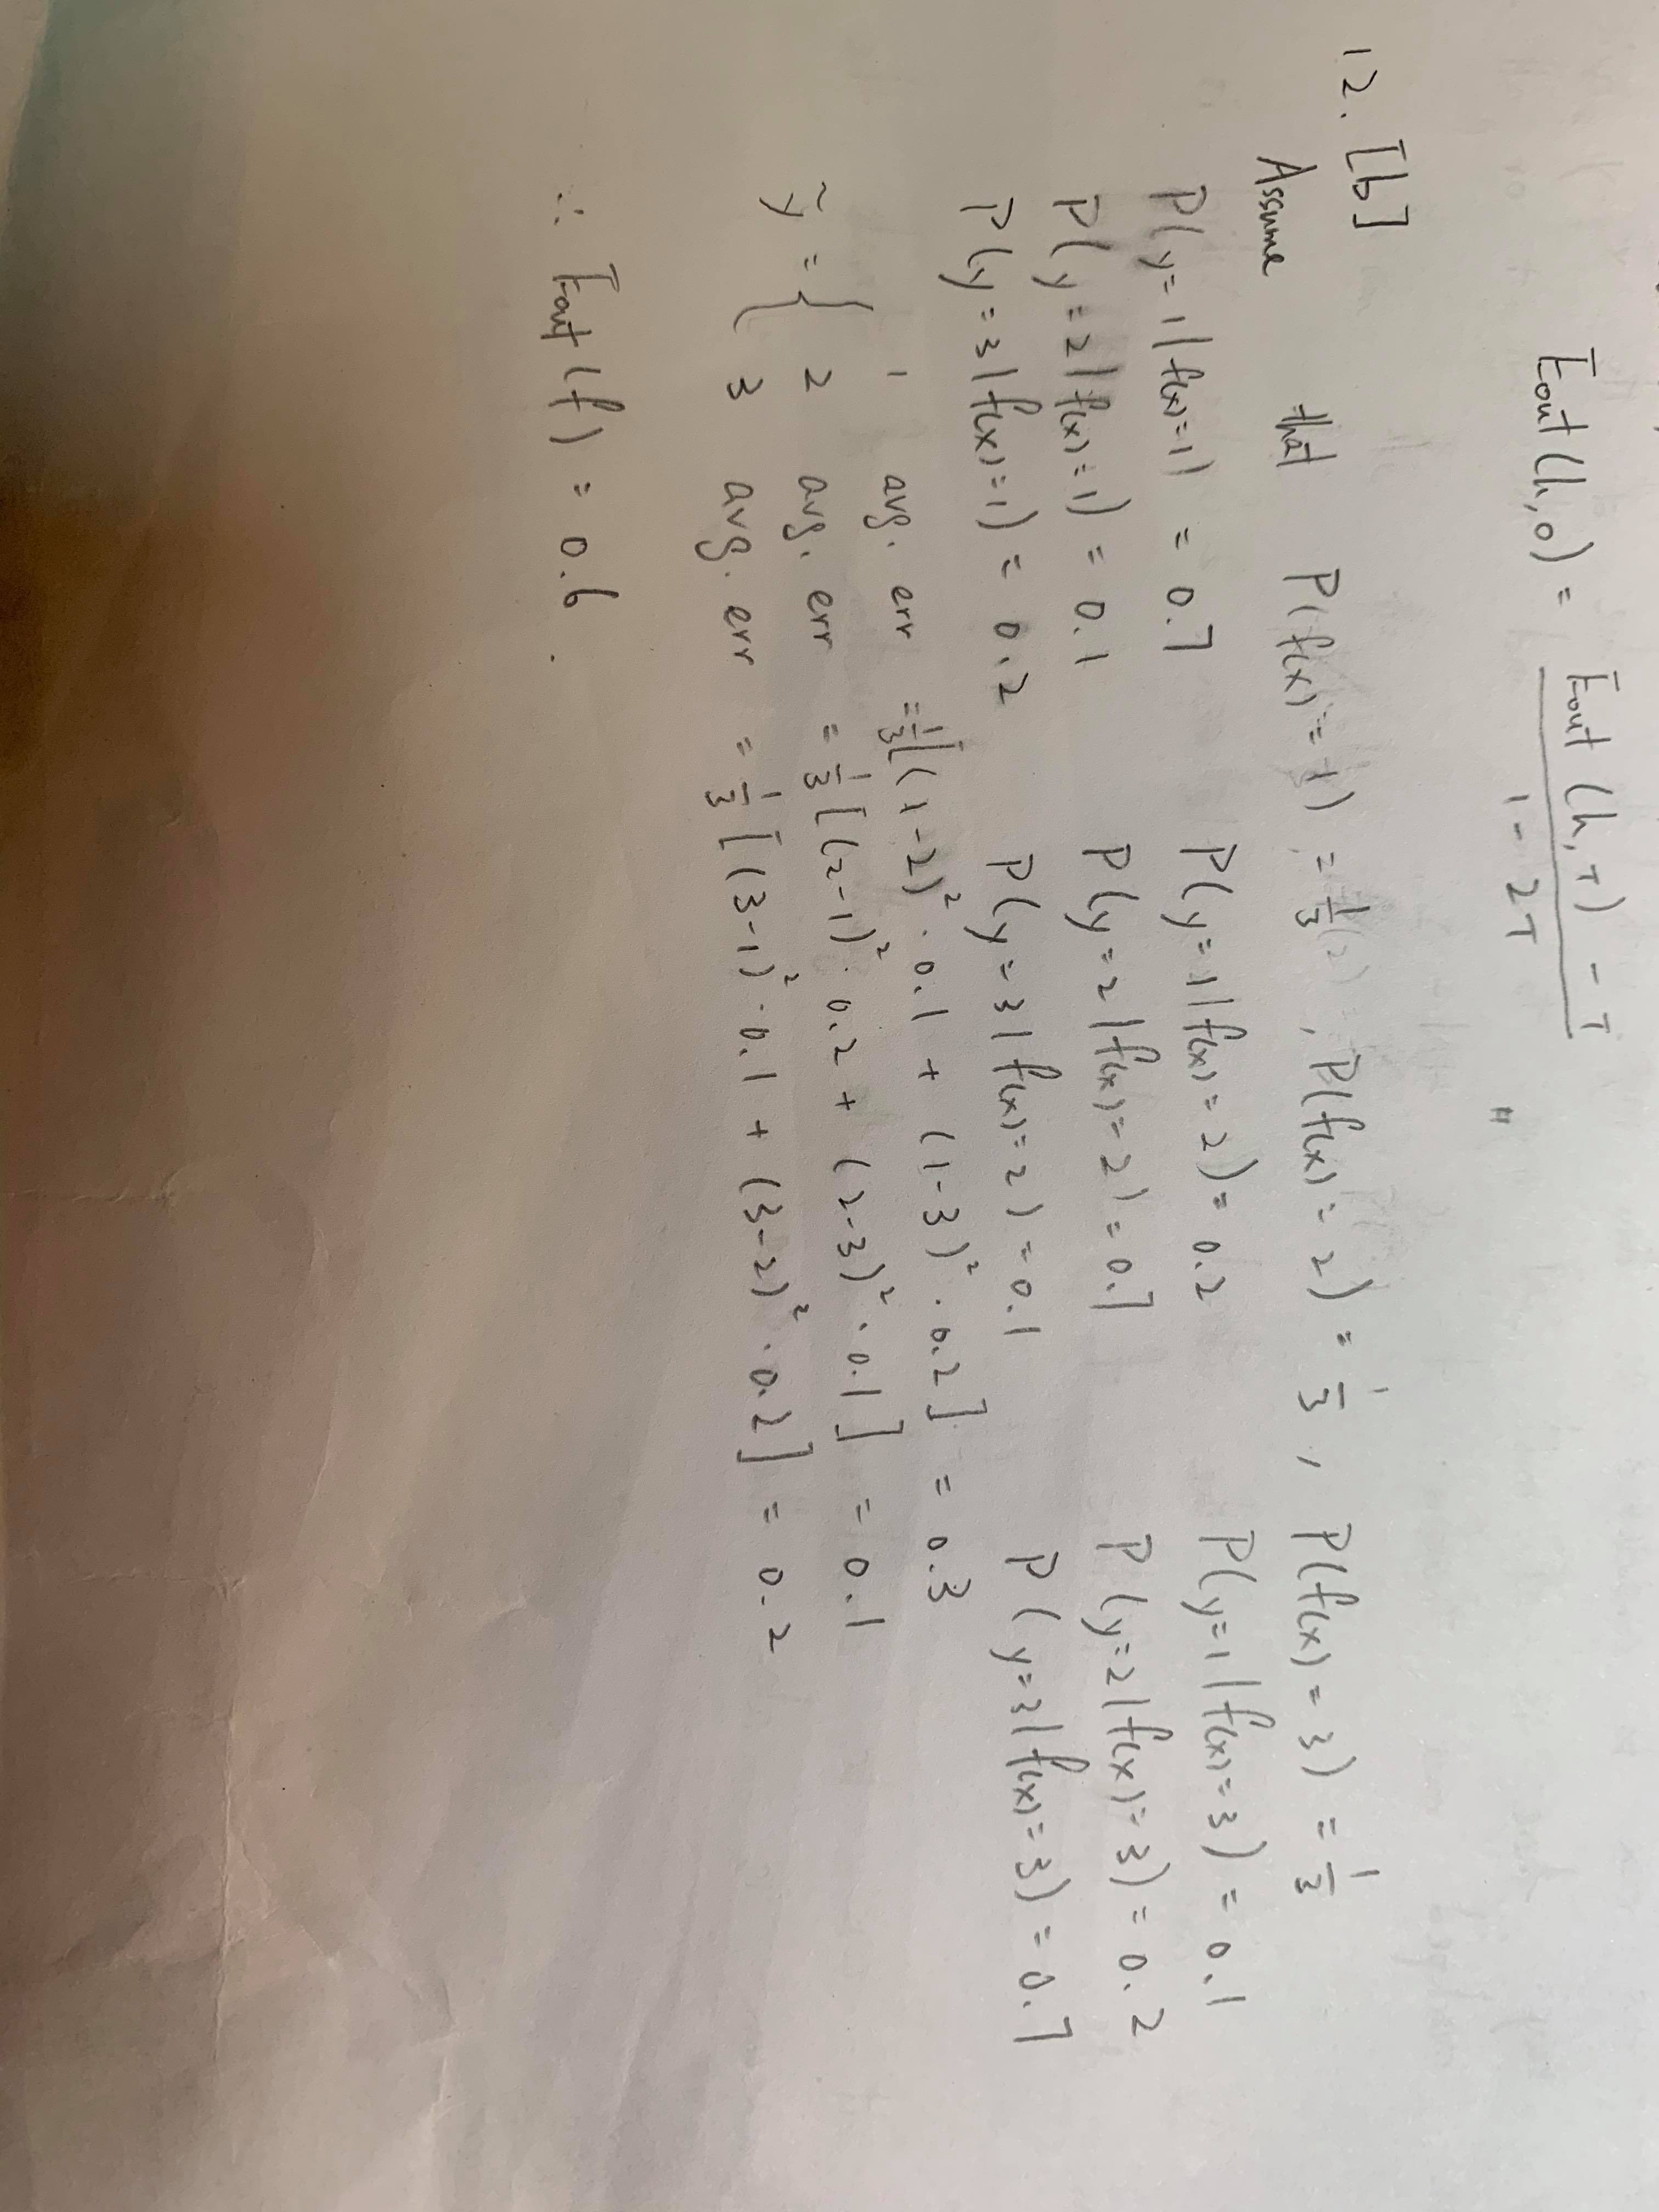 Eout (h,0) = Eout (h, τ) - τ / 1 - 2τ
12. [b]
Assume that P(f(x) = 1) = 1/3, P(f(x) = 2) = 1/3, P(f(x) = 3) = 1/3
P(y=1|f(x)=1) = 0.7 P(y=1|f(x)=2) = 0.2 P(y=1|f(x)=3) = 0.1
P(y=2|f(x)=1) = 0.1 P(y=2|f(x)=2) = 0.7 P(y=2|f(x)=3) = 0.2
P(y=3|f(x)=1) = 0.2 P(y=3|f(x)=2) = 0.1 P(y=3|f(x)=3) = 0.7
1 avg. err = 1/3[(1-2)² · 0.1 + (1-3)² · 0.2] = 0.3
ỹ = { 2 avg. err = 1/3[(2-1)² · 0.2 + (2-3)² · 0.1] = 0.1
3 avg. err = 1/3[(3-1)² · 0.1 + (3-2)² · 0.2] = 0.2
∴ Eout (f) = 0.6.